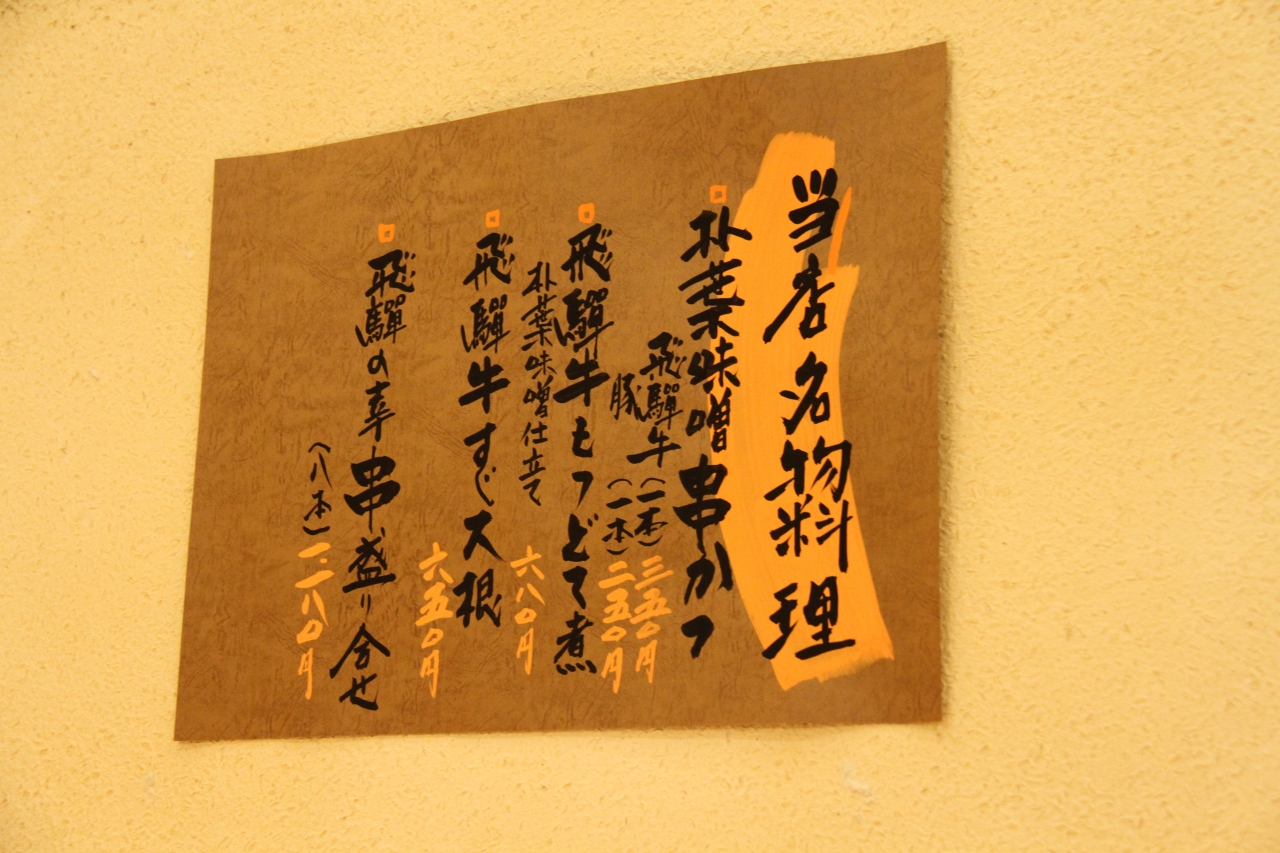 当店名物料理
朴葉味噌串かつ
飛騨牛(一本)三五〇円
豚(一本)二五〇円
飛騨牛もつどて煮
朴葉味噌仕立て 六八〇円
飛騨牛すじ大根
六五〇円
飛騨の幸串盛り合せ
(八本)一、二八〇円